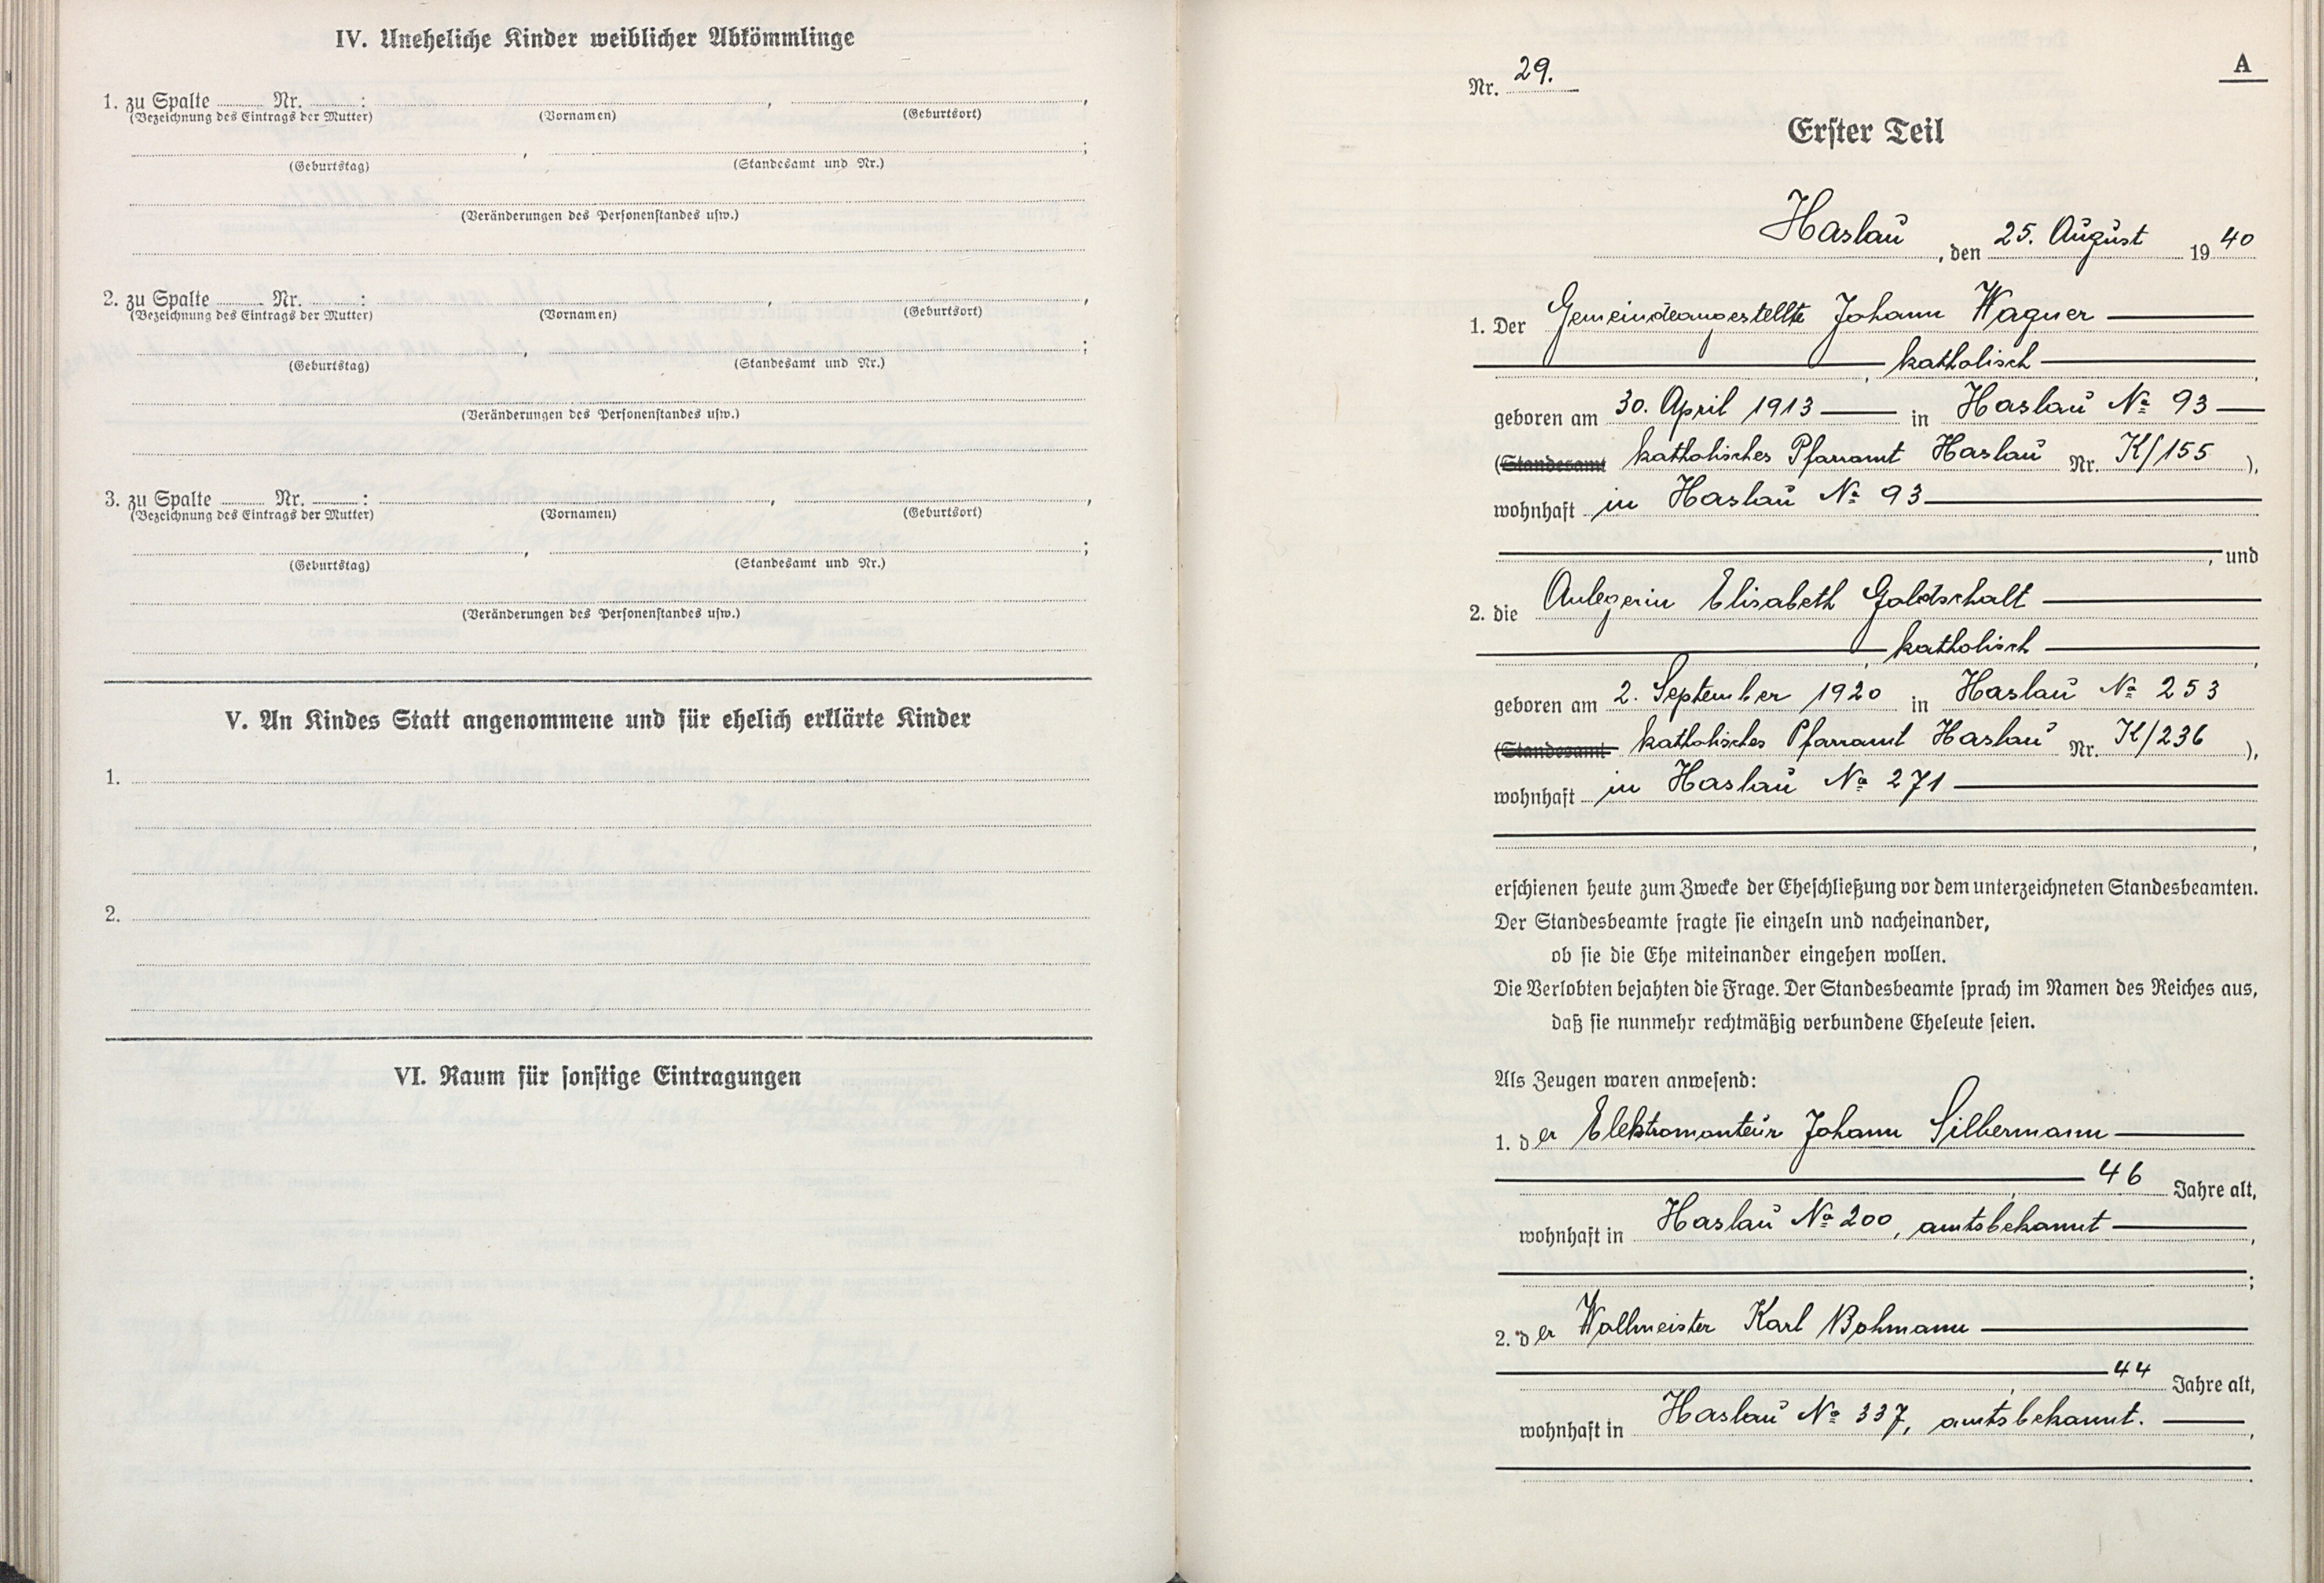 IV. Uneheliche Kinder weiblicher Abkömmlinge
1. zu Spalte Nr. : , ,
(Bezeichnung des Eintrags der Mutter) (Vornamen) (Geburtsort)
, ;
(Geburtstag) (Standesamt und Nr.)
(Veränderungen des Personenstandes usw.)
2. zu Spalte Nr. : , ,
(Bezeichnung des Eintrags der Mutter) (Vornamen) (Geburtsort)
, ;
(Geburtstag) (Standesamt und Nr.)
(Veränderungen des Personenstandes usw.)
3. zu Spalte Nr. : , ,
(Bezeichnung des Eintrags der Mutter) (Vornamen) (Geburtsort)
, ;
(Geburtstag) (Standesamt und Nr.)
(Veränderungen des Personenstandes usw.)
V. An Kindes Statt angenommene und für ehelich erklärte Kinder
1.
2.
VI. Raum für sonstige Eintragungen
Nr. 29.
A
Erster Teil
Haslau, den 25. August 1940
1. Der Gemeindeangestellte Johann Wagner
, katholisch,
geboren am 30. April 1913 in Haslau № 93
(Standesamt katholisches Pfarramt Haslau Nr. K/155),
wohnhaft in Haslau № 93
, und
2. die Anlegerin Elisabeth Goldschalt
, katholisch,
geboren am 2. September 1920 in Haslau № 253
(Standesamt katholisches Pfarramt Haslau Nr. K/236),
wohnhaft in Haslau № 271
,
erschienen heute zum Zwecke der Eheschließung vor dem unterzeichneten Standesbeamten.
Der Standesbeamte fragte sie einzeln und nacheinander,
ob sie die Ehe miteinander eingehen wollen.
Die Verlobten bejahten die Frage. Der Standesbeamte sprach im Namen des Reiches aus,
daß sie nunmehr rechtmäßig verbundene Eheleute seien.
Als Zeugen waren anwesend:
1. der Elektromonteur Johann Silbermann
, 46 Jahre alt,
wohnhaft in Haslau № 200, amtsbekannt,
;
2. der Wallmeister Karl Bohmann
, 44 Jahre alt,
wohnhaft in Haslau № 337, amtsbekannt.,
.